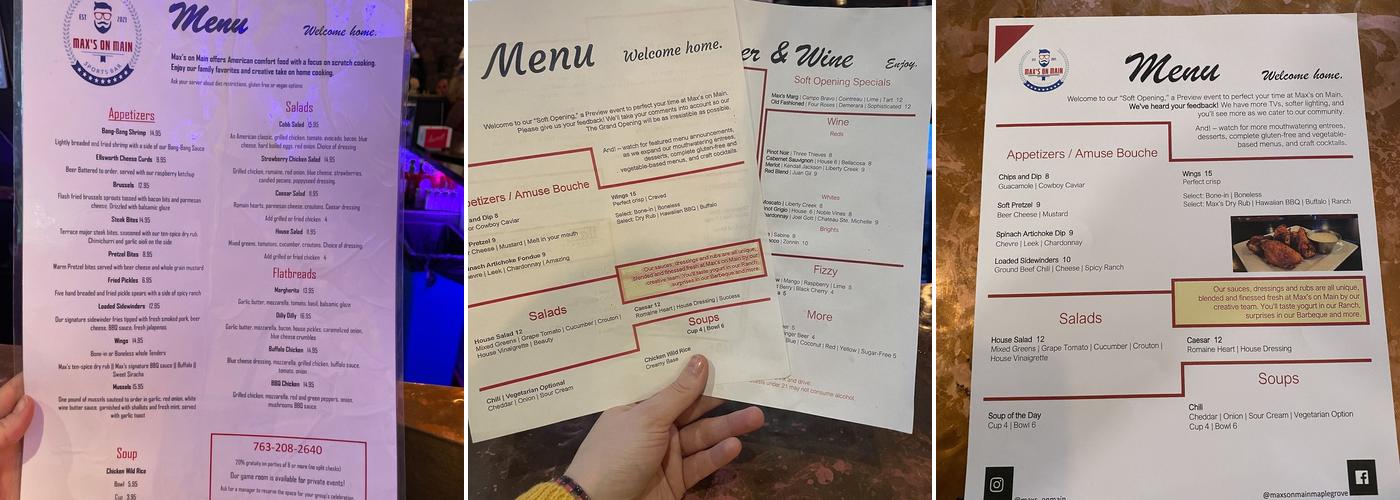 EST 2021
MAX'S ON MAIN
SPORTS BAR
Menu
Welcome home.
Max's on Main offers American comfort food with a focus on scratch cooking.
Enjoy our family favorites and creative take on home cooking.
Ask your server about diet restrictions, gluten free or vegan options
Appetizers
Bang-Bang Shrimp 14.95
Lightly breaded and fried shrimp with a side of our Bang-Bang Sauce
Ellsworth Cheese Curds 9.95
Beer Battered to order, served with our raspberry ketchup
Brussels 12.95
Flash fried brussels sprouts tossed with bacon bits and parmesan
cheese. Drizzled with balsamic glaze
Steak Bites 14.95
Terrace major steak bites, seasoned with our ten-spice dry rub.
Chimichurri and garlic aioli on the side
Pretzel Bites 8.95
Warm Pretzel bites served with beer cheese and whole grain mustard
Fried Pickles 6.95
Five hand breaded and fried pickle spears with a side of spicy ranch
Loaded Sidewinders 12.95
Our signature sidewinder fries tipped with fresh smoked pork, beer
cheese, BBQ sauce, fresh jalapenos
Wings 14.95
Bone-in or Boneless whole Tenders
Max's ten-spice dry rub || Max's signature BBQ sauce || Buffalo ||
Sweet Siracha
Mussels 15.95
One pound of mussels sauteed to order in garlic, red onion, white
wine butter sauce, garnished with shallots and fresh mint, served
with garlic toast
Soup
Chicken Wild Rice
Bowl 5.95
Cup 3.95
Salads
Cobb Salad 15.95
An American classic, grilled chicken, tomato, avocado, bacon, blue
cheese, hard boiled eggs, red onion. Choice of dressing
Strawberry Chicken Salad 14.95
Grilled chicken, romaine, red onion, blue cheese, strawberries,
candied pecans, poppyseed dressing.
Caesar Salad 11.95
Romain hearts, parmesan cheese, croutons, Caesar dressing
Add grilled or fried chicken 4
House Salad 11.95
Mixed greens, tomatoes, cucumber, croutons. Choice of dressing.
Add grilled or fried chicken 4
Flatbreads
Margherita 13.95
Garlic butter, mozzarella, tomato, basil, balsamic glaze
Dilly Dilly 16.95
Garlic butter, mozzarella, bacon, house pickles, caramelized onion,
blue cheese crumbles
Buffalo Chicken 14.95
Blue cheese dressing, mozzarella, grilled chicken, buffalo sauce,
tomato, onion
BBQ Chicken 14.95
Grilled chicken, mozzarella, red and green peppers, onion,
mushrooms BBQ sauce
763-208-2640
20% gratuity on parties of 8 or more (no split checks)
Our game room is available for private events!
Ask for a manager to reserve the space for your group's celebration
Menu
Welcome home.
Welcome to our "Soft Opening," a Preview event to perfect your time at Max's on Main.
Please give us your feedback! We'll take your comments into account so our
The Grand Opening will be as irresistible as possible.
And! – watch for featured menu announcements,
as we expand our mouthwatering entrees,
desserts, complete gluten-free and
vegetable-based menus, and craft cocktails.
petizers / Amuse Bouche
and Dip 8
or Cowboy Caviar
Pretzel 9
r Cheese | Mustard | Melt in your mouth
inach Artichoke Fondue 9
evre | Leek | Chardonnay | Amazing
Wings 15
Perfect crisp | Craved
Select: Bone-in | Boneless
Select: Dry Rub | Hawaiian BBQ | Buffalo
Our sauces, dressings and rubs are all unique,
blended and finessed fresh at Max's on Main by our
creative team. You'll taste yogurt in our Ranch,
surprises in our Barbeque and more.
Salads
House Salad 12
Mixed Greens | Grape Tomato | Cucumber | Crouton |
House Vinaigrette | Beauty
Caesar 12
Romaine Heart | House Dressing | Success
Soups
Cup 4 | Bowl 6
Chili | Vegetarian Optional
Cheddar | Onion | Sour Cream
Chicken Wild Rice
Creamy Base
er & Wine
Enjoy.
Soft Opening Specials
Max's Marg | Campo Bravo | Cointreau | Lime | Tart 12
Old Fashioned | Four Roses | Demerara | Sophisticated 12
Wine
Reds
Pinot Noir | Three Thieves 8
Cabernet Sauvignon | House 6 | Bellacosa 8
Merlot | Kendall Jackson | Liberty Creek 9
Red Blend | Juan Gil 9
Whites
Moscato | Liberty Creek 8
Pinot Grigio | House 6 | Noble Vines 8
hardonnay | Joel Gott | Chateau Ste. Michelle 9
Brights
| Sabine 9
| Zonnin 10
Fizzy
| Mango | Raspberry | Lime 5
Berry | Black Cherry 4
More
inger Beer 4
Blue | Coconut | Red | Yellow | Sugar-Free 5
and drive.
ests under 21 may not consume alcohol
MAX'S ON MAIN
SPORTS BAR
Menu
Welcome home.
Welcome to our "Soft Opening," a Preview event to perfect your time at Max's on Main.
We've heard your feedback! We have more TVs, softer lighting, and
you'll see more as we cater to our community.
And! – watch for more mouthwatering entrees,
desserts, complete gluten-free and vegetable-
based menus, and craft cocktails.
Appetizers / Amuse Bouche
Chips and Dip 8
Guacamole | Cowboy Caviar
Soft Pretzel 9
Beer Cheese | Mustard
Spinach Artichoke Dip 9
Chevre | Leek | Chardonnay
Loaded Sidewinders 10
Ground Beef Chili | Cheese | Spicy Ranch
Wings 15
Perfect crisp
Select: Bone-in | Boneless
Select: Max's Dry Rub | Hawaiian BBQ | Buffalo | Ranch
Our sauces, dressings and rubs are all unique,
blended and finessed fresh at Max's on Main by our
creative team. You'll taste yogurt in our Ranch,
surprises in our Barbeque and more.
Salads
House Salad 12
Mixed Greens | Grape Tomato | Cucumber | Crouton |
House Vinaigrette
Caesar 12
Romaine Heart | House Dressing
Soups
Soup of the Day
Cup 4 | Bowl 6
Chili
Cheddar | Onion | Sour Cream | Vegetarian Option
Cup 4 | Bowl 6
@maxs_onmain
@maxsonmainmaplegrove